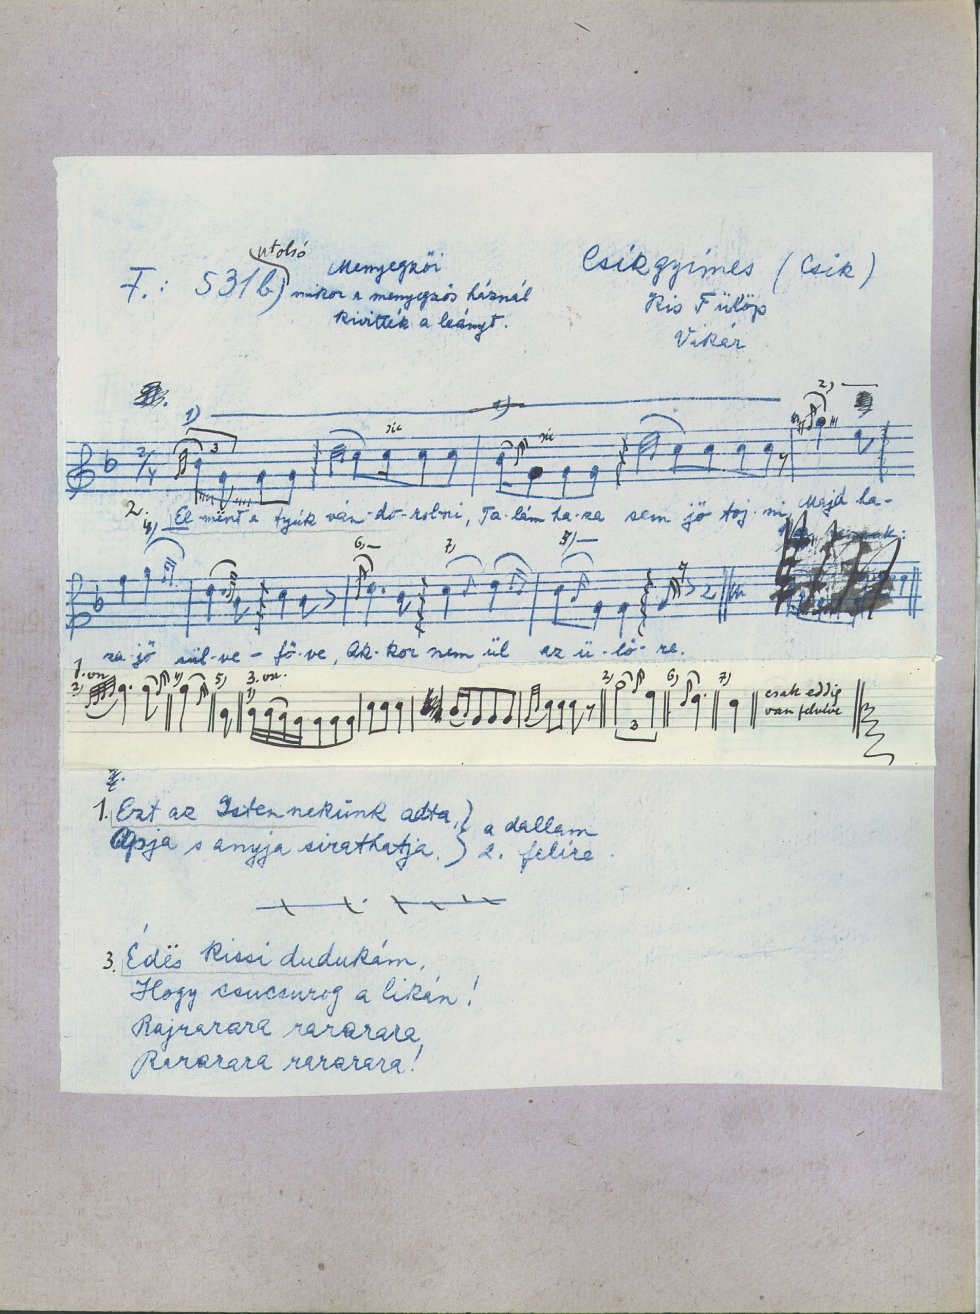 F.: 531b) utolsó
Menyegzői
mikor a menyegzős háznál
kivitték a leányt.
Csíkgyimes (Csík)
Kis Fülöp
Vikár
1)
2)
3
sic
sic
2/4
2. El mënt a tyúk ván-do-rolni, Ta-lám ha-za sem jő toj-ni, Majd ha-
4)
6)
7)
za jő sül-ve-fő-ve, Ak-kor nem ül az ü-lő-re.
1. vn.
2)
4)
5)
3. vn.
1)
2)
3
6)
7)
csak eddig
van felvéve
1. Ezt az Isten nekünk adta,
Apja s anyja sirathatja.
a dallam
2. felire
3. Édës kissi dudukám,
Hogy csucsurog a likán!
Rajrarara rararara,
Rararara rararara!